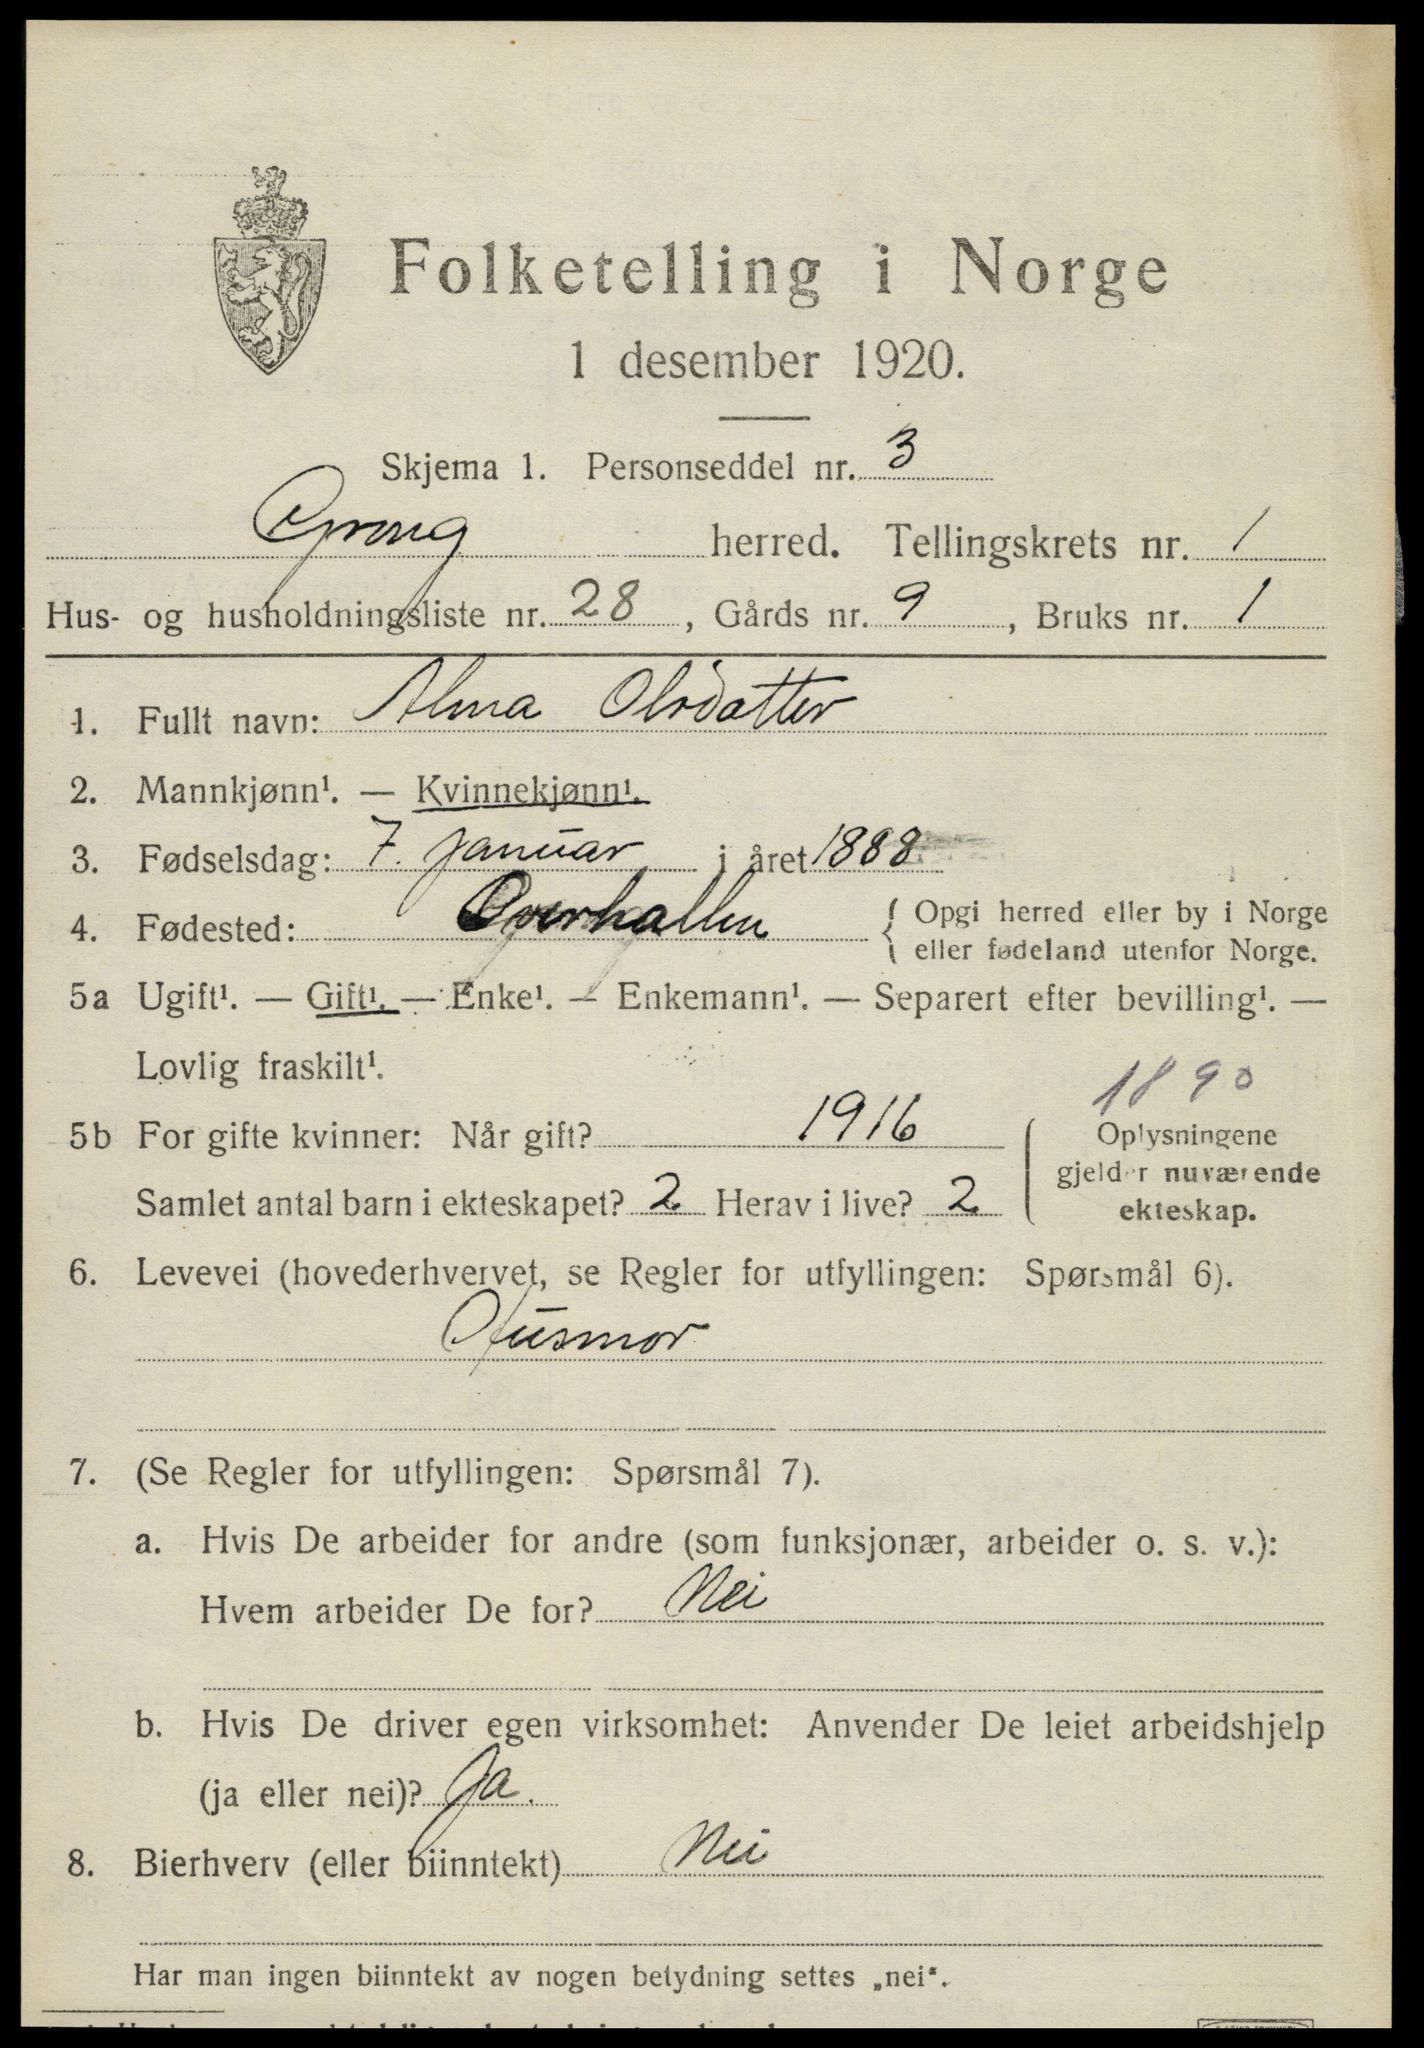 Folketelling i Norge
1 desember 1920.
Skjema 1. Personseddel nr. 3
Grong herred. Tellingskrets nr. 1
Hus- og husholdningsliste nr. 28, Gårds nr. 9, Bruks nr. 1
1. Fullt navn: Alma Olsdatter
2. Mannkjønn¹. — Kvinnekjønn¹.
3. Fødselsdag: 7. januar i året 1888
4. Fødested: Overhallen { Opgi herred eller by i Norge
eller fødeland utenfor Norge.
5a Ugift¹. — Gift¹. — Enke¹. — Enkemann¹. — Separert efter bevilling¹. —
Lovlig fraskilt¹.
1890
5b For gifte kvinner: Når gift? 1916
Samlet antal barn i ekteskapet? 2 Herav i live? 2
Oplysningene
gjelder nuværende
ekteskap.
6. Levevei (hovederhvervet, se Regler for utfyllingen: Spørsmål 6).
Husmor
7. (Se Regler for utfyllingen: Spørsmål 7).
a. Hvis De arbeider for andre (som funksjonær, arbeider o. s. v.):
Hvem arbeider De for? Nei
b. Hvis De driver egen virksomhet: Anvender De leiet arbeidshjelp
(ja eller nei)? Ja.
8. Bierhverv (eller biinntekt) Nei
Har man ingen biinntekt av nogen betydning settes „nei“.